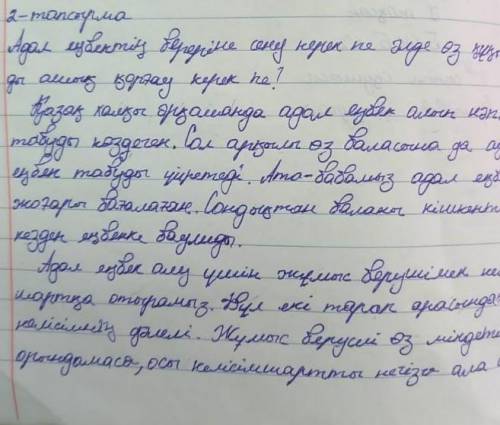 2-тапсырма
Адал еңбектің береріне сену керек пе әлде өз құқы
ды ашық қорғау керек пе?
Қазақ халқы әрқашанда адал еңбек алып нәп
табуды көздеген. Сол арқылы өз баласына да ад
еңбек табуды үйретеді. Ата-бабамыз адал еңб
жоғары бағалаған. Сондықтан баланы кішкент
кезден еңбекке баулиды.
Адал еңбек алу үшін жұмыс берушімен ке
шартқа отырамыз. Бұл екі тарап арасында
келісімнің дәлелі. Жұмыс беруші өз міндет
орындамаса, осы келісімшартты негізге ала